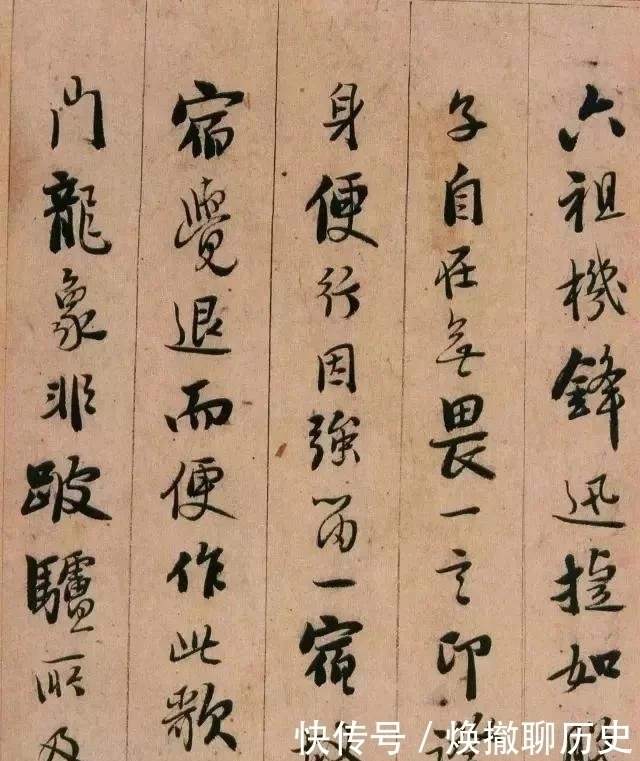 六祖機鋒迅捷如
子自在無畏一言印
身便行因強留一宿
宿覺退而便作此歌
門龍象非跛驢所及
快传号 / 焕撤聊历史